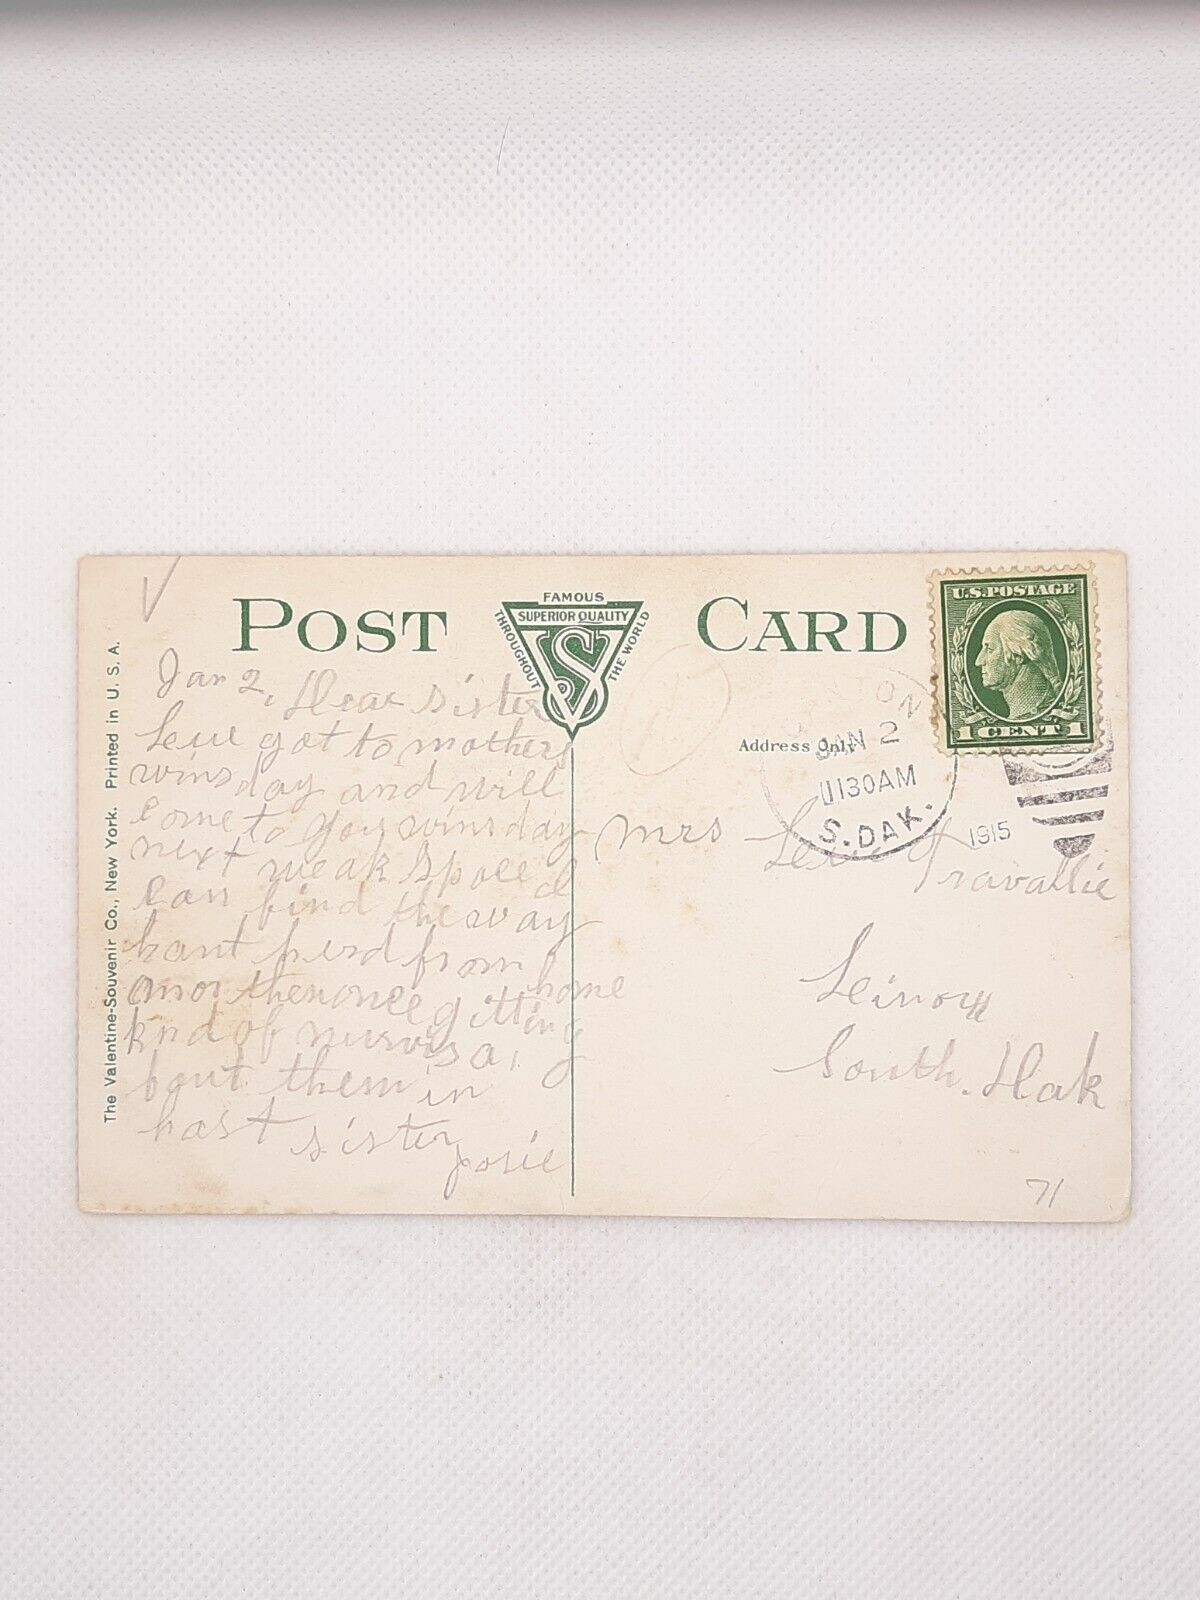 POST CARD
FAMOUS
SUPERIOR QUALITY
THROUGHOUT
THE WORLD
VS
U.S. POSTAGE
1 CENT 1
Address Only
ON
JAN 2
1130AM
S. DAK.
1915
The Valentine-Souvenir Co., New York. Printed in U. S. A.
Jan 2, Dear sister
got to mothers
winsday and will
come to you winsday
next weak
can find the way
hant herd from
home
gitting
knd of nurvis a,
bout them in
hast sister
Josie
Mrs
Travallie
South. Dak
71